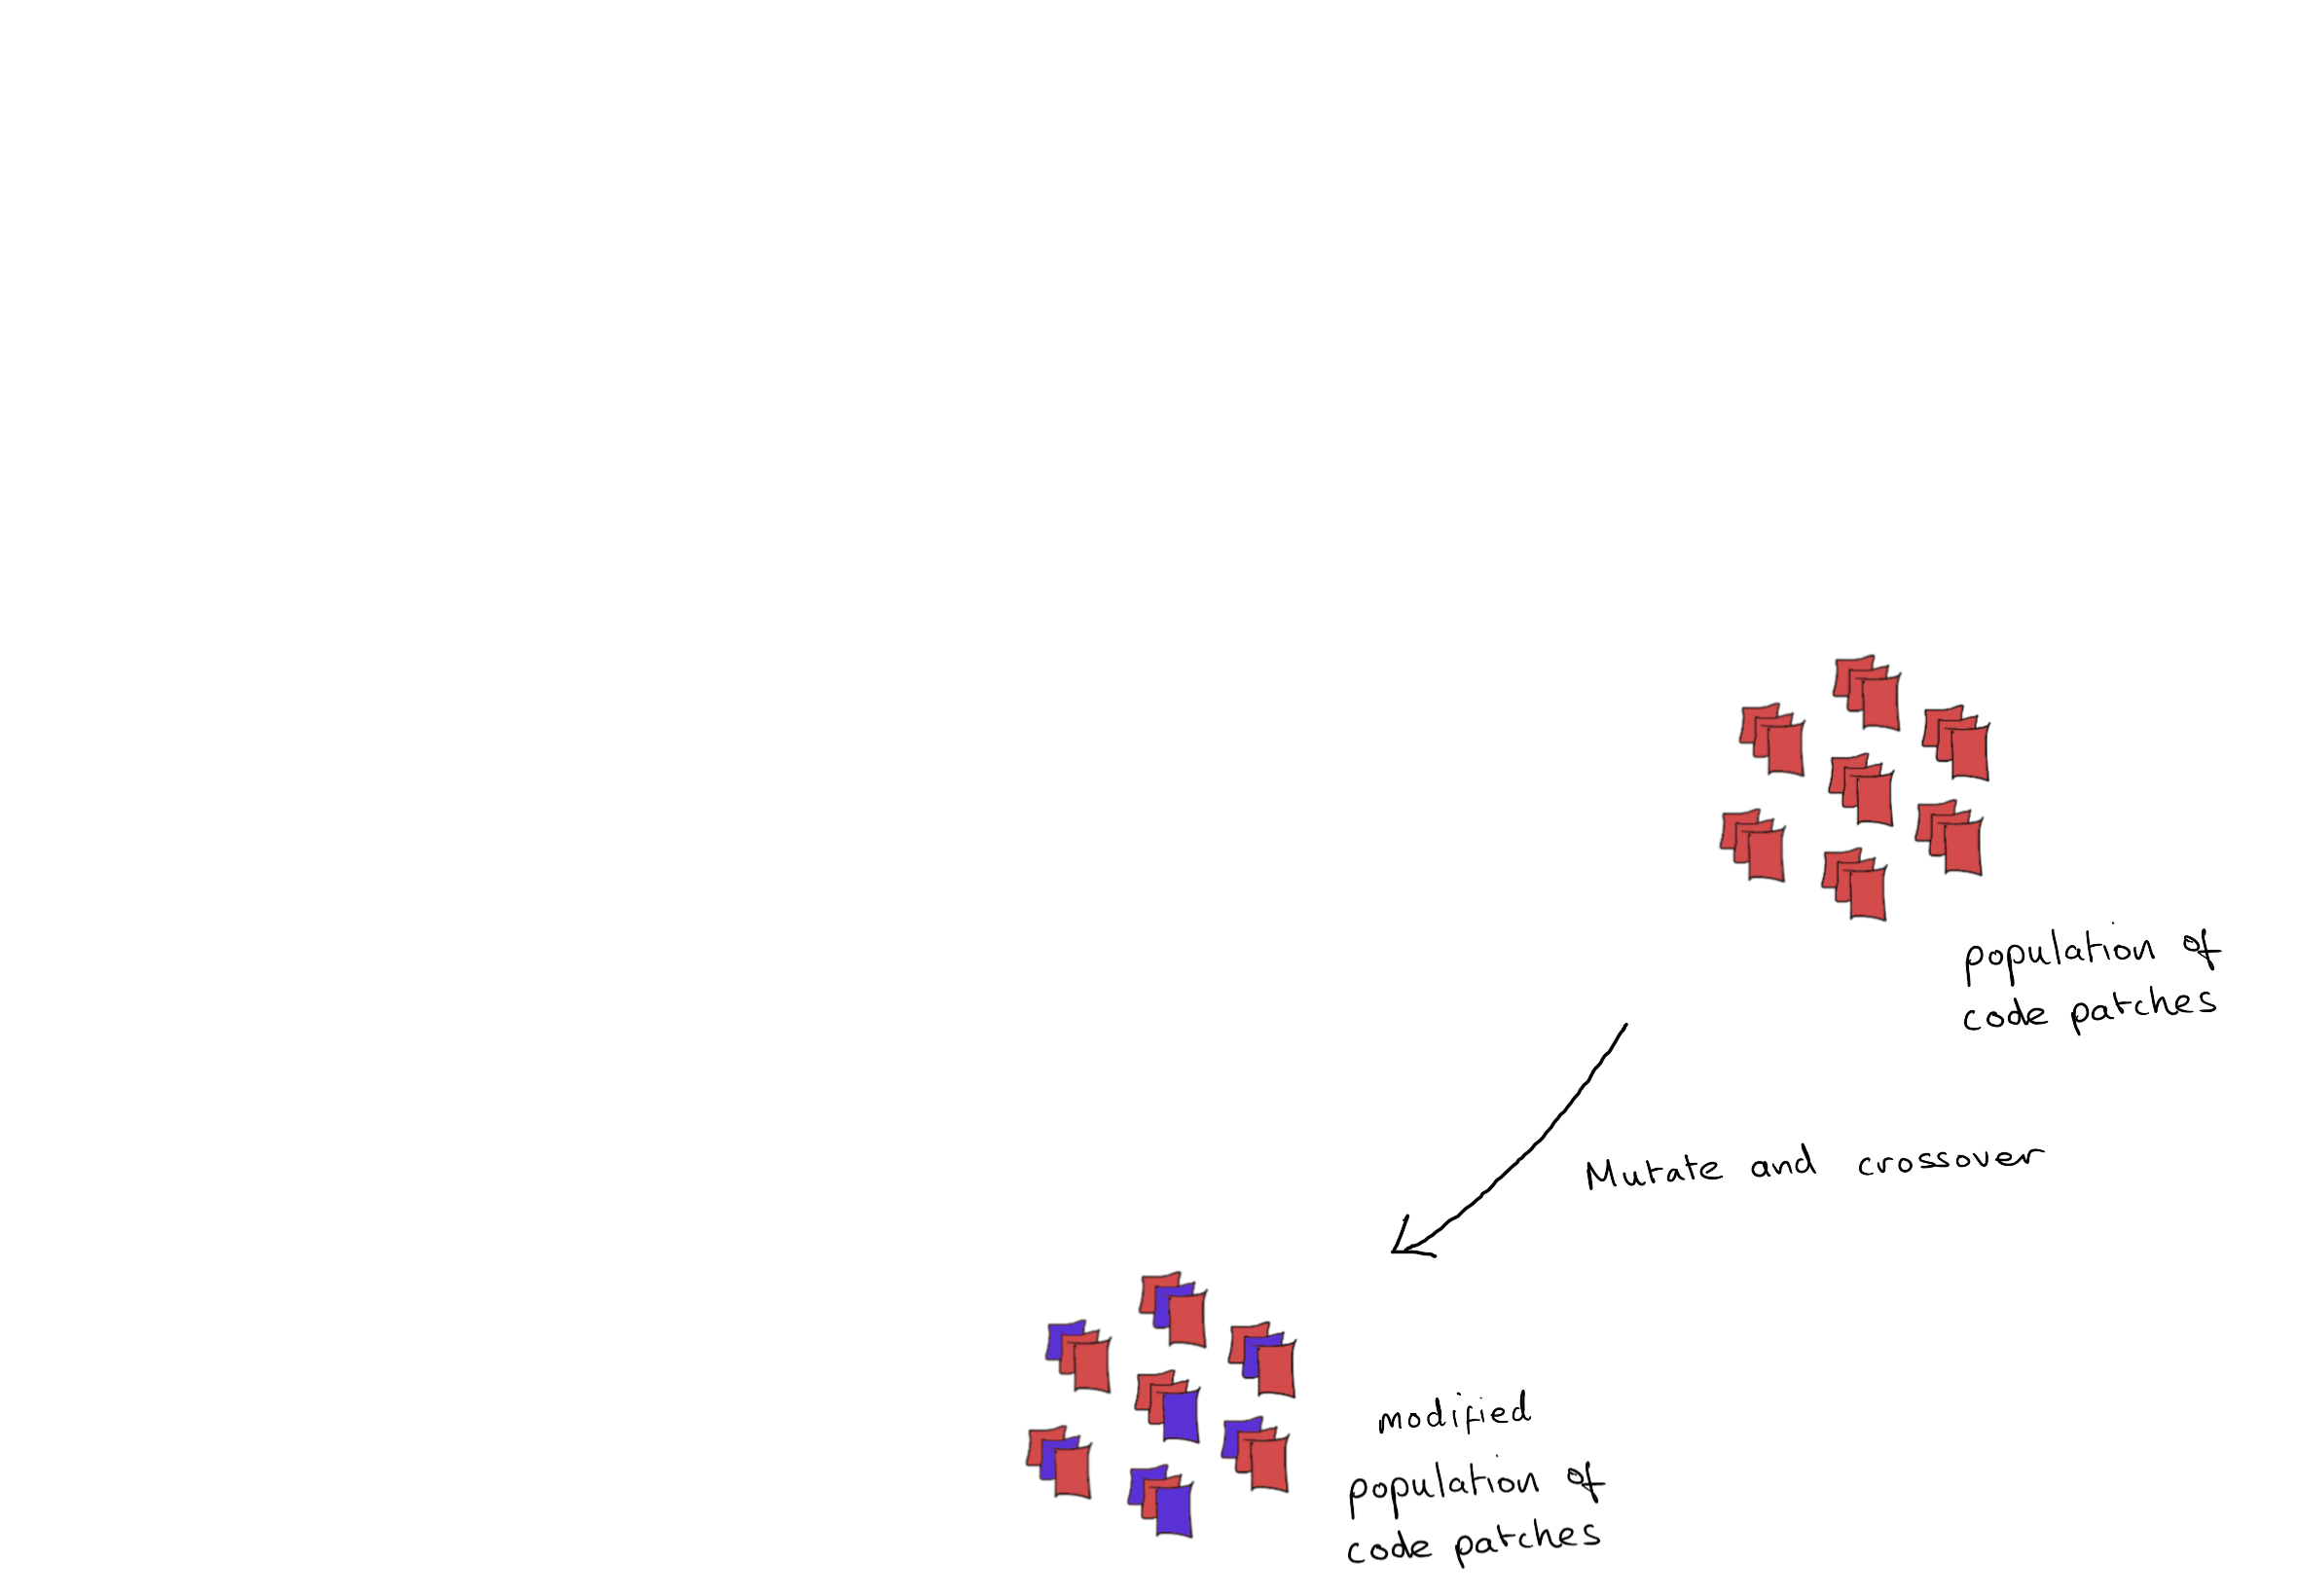 population of
code patches
Mutate and crossover
modified
population of
code patches